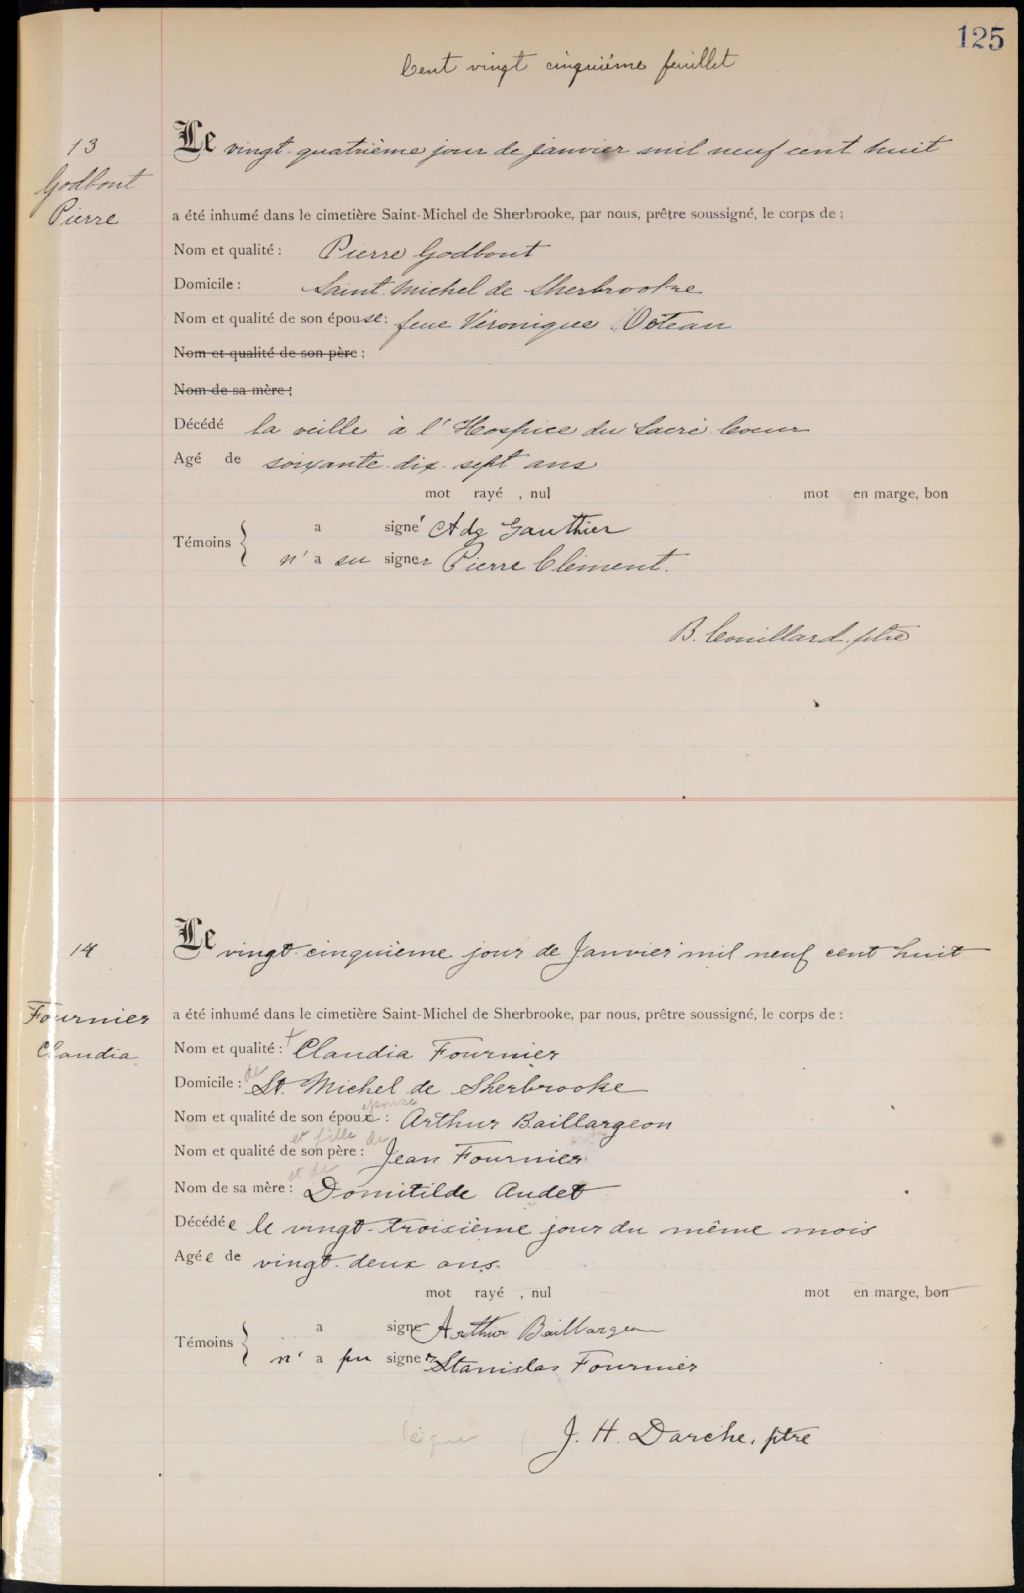 125
Cent vingt cinquième feuillet
13
Godbout
Pierre
Le vingt-quatrième jour de janvier mil neuf cent huit
a été inhumé dans le cimetière Saint-Michel de Sherbrooke, par nous, prêtre soussigné, le corps de :
Nom et qualité : Pierre Godbout
Domicile : Saint-Michel de Sherbrooke
Nom et qualité de son épouse : feue Véronique
Nom et qualité de son père :
Nom de sa mère :
Décédé la veille à l'Hospice du Sacré-Coeur
Agé de soixante-dix-sept ans
mot rayé , nul mot en marge, bon
Témoins
a signé Adg Gauthier
n'a su signer Pierre Clément.
B. Couillard, ptre
14
Fournier
Claudia
Le vingt-cinquième jour de Janvier mil neuf cent huit
a été inhumé dans le cimetière Saint-Michel de Sherbrooke, par nous, prêtre soussigné, le corps de :
Nom et qualité : Claudia Fournier
de
Domicile : St. Michel de Sherbrooke
épouse
Nom et qualité de son époux : Arthur Baillargeon
et fille de
Nom et qualité de son père : Jean Fournier
et de
Nom de sa mère : Domitilde Audet
Décédée le vingt-troisième jour du même mois
Agée de vingt-deux ans.
mot rayé , nul mot en marge, bon
Témoins
a signé Arthur Baillargeon
n'a pu signer Stanislas Fournier
J. H. Darche, ptre